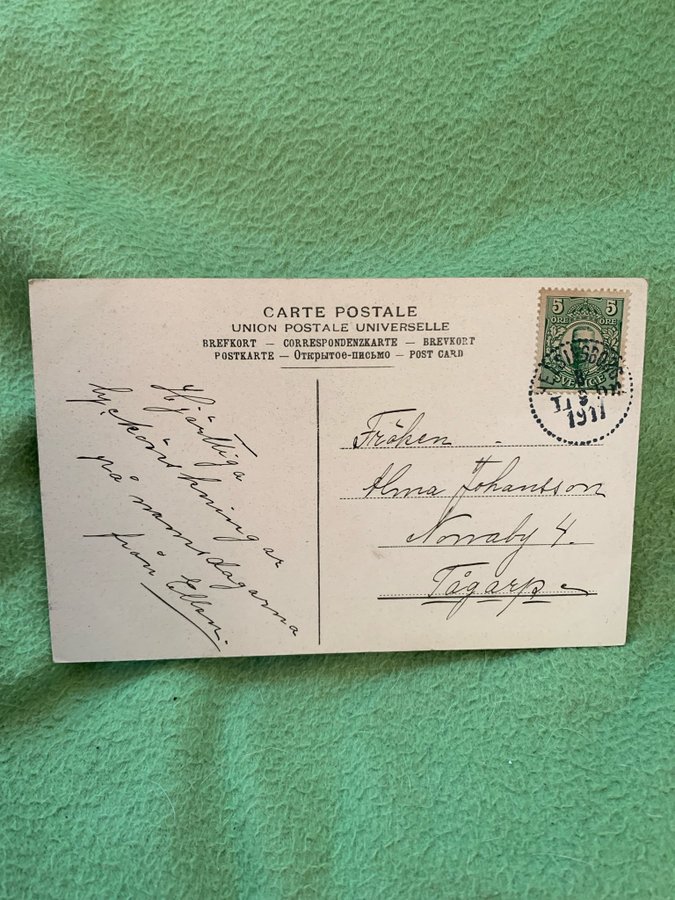 CARTE POSTALE
UNION POSTALE UNIVERSELLE
BREFKORT — CORRESPONDENZKARTE — BREVKORT
POSTKARTE — Открытое-письмо — POST CARD
5 5
ÖRE ÖRE
SVERIGE
1911
Hjärtliga
lyckönskningar
på namnsdagarna
från Ellen.
Fröken
Alma Johansson
Norraby 4.
Tågarp